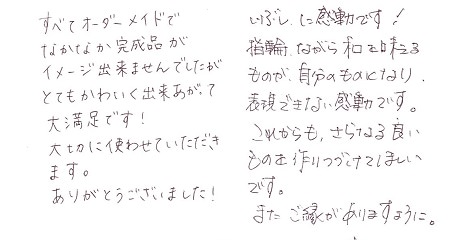 すべてオーダーメイドで
なかなか完成品が
イメージ出来ませんでしたが
とてもかわいく出来あがって
大満足です!
大切に使わせていただき
ます。
ありがとうございました!
いぶし に感動です!
指輪ながら和を口える
ものが、自分のものになり、
表現できない感動です。
これからも、さらなる良い
ものを作りつづけてほしい
です。
また ご縁がありますように。